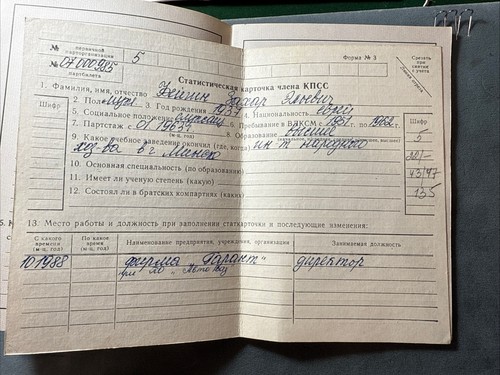 № первичной парторганизации 5
№ 07000985 партбилета
Форма № 3
Срезать при снятии с учета
Статистическая карточка члена КПСС
1. Фамилия, имя, отчество Захар
2. Пол муж. 3. Год рождения 1937 4. Национальность еврей
Шифр
5. Социальное положение служащ 6. Пребывание в ВЛКСМ с 1951 г. по 1962 г.
Шифр
7. Партстаж с 01.1963 г. 8. Образование высшее
5
9. Какое учебное заведение окончил (где, когда) ин-т народного
хоз-ва в г. Минске
10. Основная специальность (по образованию)
43/47
11. Имеет ли ученую степень (какую)
135
12. Состоял ли в братских компартиях (каких)
13. Место работы и должность при заполнении статкарточки и последующие изменения:
С какого времени (м-ц, год) По какое время (м-ц, год) Наименование предприятия, учреждения, организации Занимаемая должность
10.1988 фирма "Гарант" директор
при